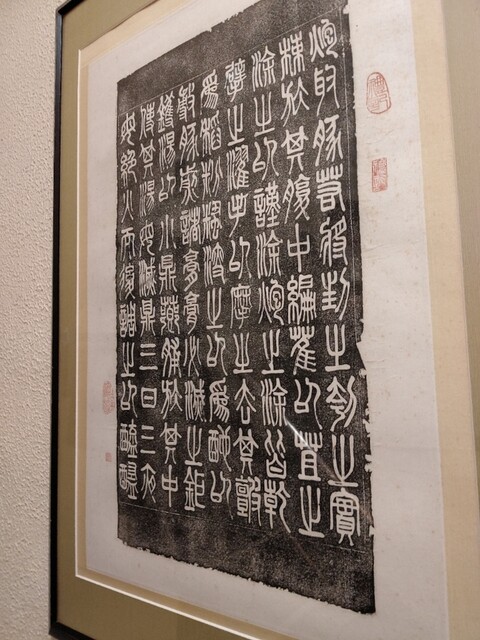 炮取豚若將刲之刳之實
棗於其腹中編萑以苴之
塗之以謹塗炮之塗皆乾
擘之濯手以摩之去其皽
為稻粉糔溲之以為酏以
付豚煎諸膏膏必滅之鉅
鑊湯以小鼎薌脯於其中
使其湯毋滅鼎三日三夜
毋絕火而後調之以醯醢